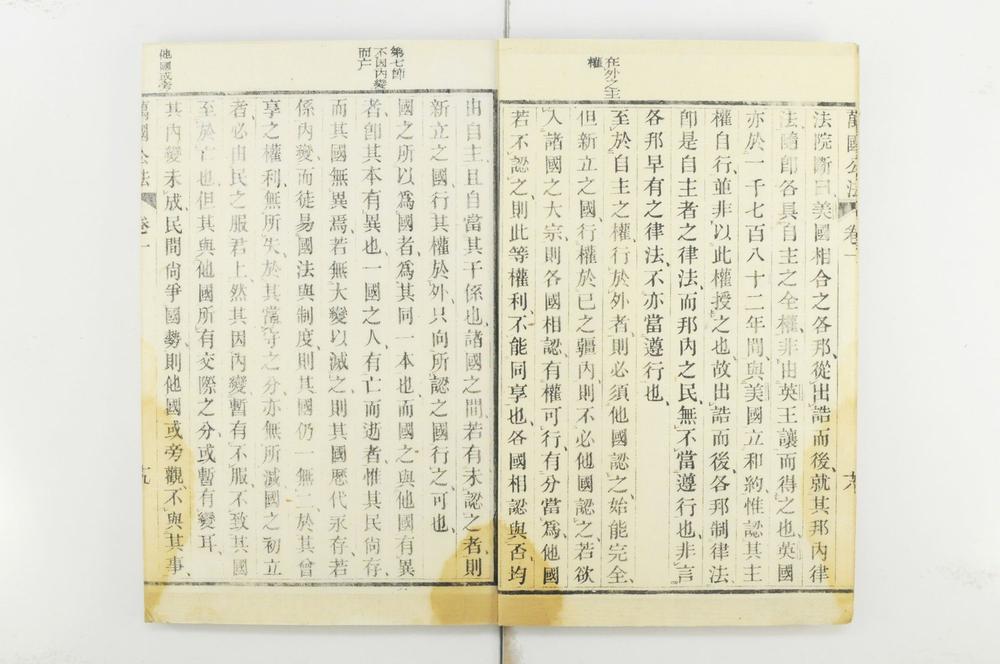 在外之主
權
萬國公法 卷一
法院斷曰美國相合之各邦從出誥而後就其邦內律
法隨即各具自主之全權非由英王讓而得之也英國
亦於一千七百八十二年間與美國立和約惟認其主
權自行並非以此權授之也故出誥而後各邦制律法
即是自主者之律法而邦內之民無不當遵行也非言
各邦早有之律法不亦當遵行也
至於自主之權行於外者則必須他國認之始能完全
但新立之國行權於己之疆內則不必他國認之若欲
入諸國之大宗則各國相認有權可行有分當為他國
若不認之則此等權利不能同享也各國相認與否均
第七節
不因內變
而亡
他國或旁
由自主且自當其干係也諸國之間若有未認之者則
新立之國行其權於外只向所認之國行之可也
國之所以爲國者爲其同一本也而國之與他國有異
者即其本有異也一國之人有亡而逝者惟其民尚存
而其國無異焉若無大變以滅之則其國歷代永存若
係內變而徒易國法與制度則其國仍一無二於其曾
享之權利無所失於其當守之分亦無所減國之初立
者必由民之服君上然其因內變暫有不服不致其國
至於亡也但其與他國所有交際之分或暫有變耳
其內變未成民間尚爭國勢則他國或旁觀不與其事
萬國公法 卷一